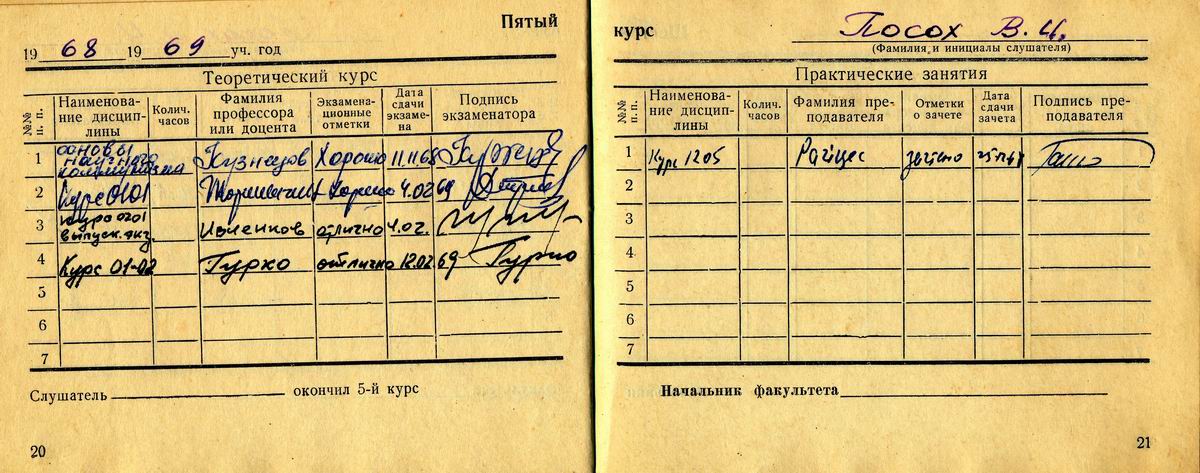 Пятый
19 68 19 69 уч. год
Теоретический курс
№№ п. п.
Наименова-
ние дисцип-
лины
Колич.
часов
Фамилия
профессора
или доцента
Экзамена-
ционные
отметки
Дата
сдачи
экзаме-
на
Подпись
экзаменатора
1 основы научного коммунизма Кузнецов Хорошо 11.11.68
2 Курс 0201 хорошо 4.02 69
3 Курс 0201 выпуск. экз. Ивченков отлично 4.02.
4 Курс 01-02 Гурко отлично 12.02 69 Гурко
5
6
7
Слушатель окончил 5-й курс
20
курс
Посох В. И.
(Фамилия и инициалы слушателя)
Практические занятия
№№ п. п.
Наименова-
ние дисцип-
лины
Колич.
часов
Фамилия пре-
подавателя
Отметки
о зачете
Дата
сдачи
зачета
Подпись пре-
подавателя
1 Курс 1205 Райцес зачтено
2
3
4
5
6
7
Начальник факультета
21